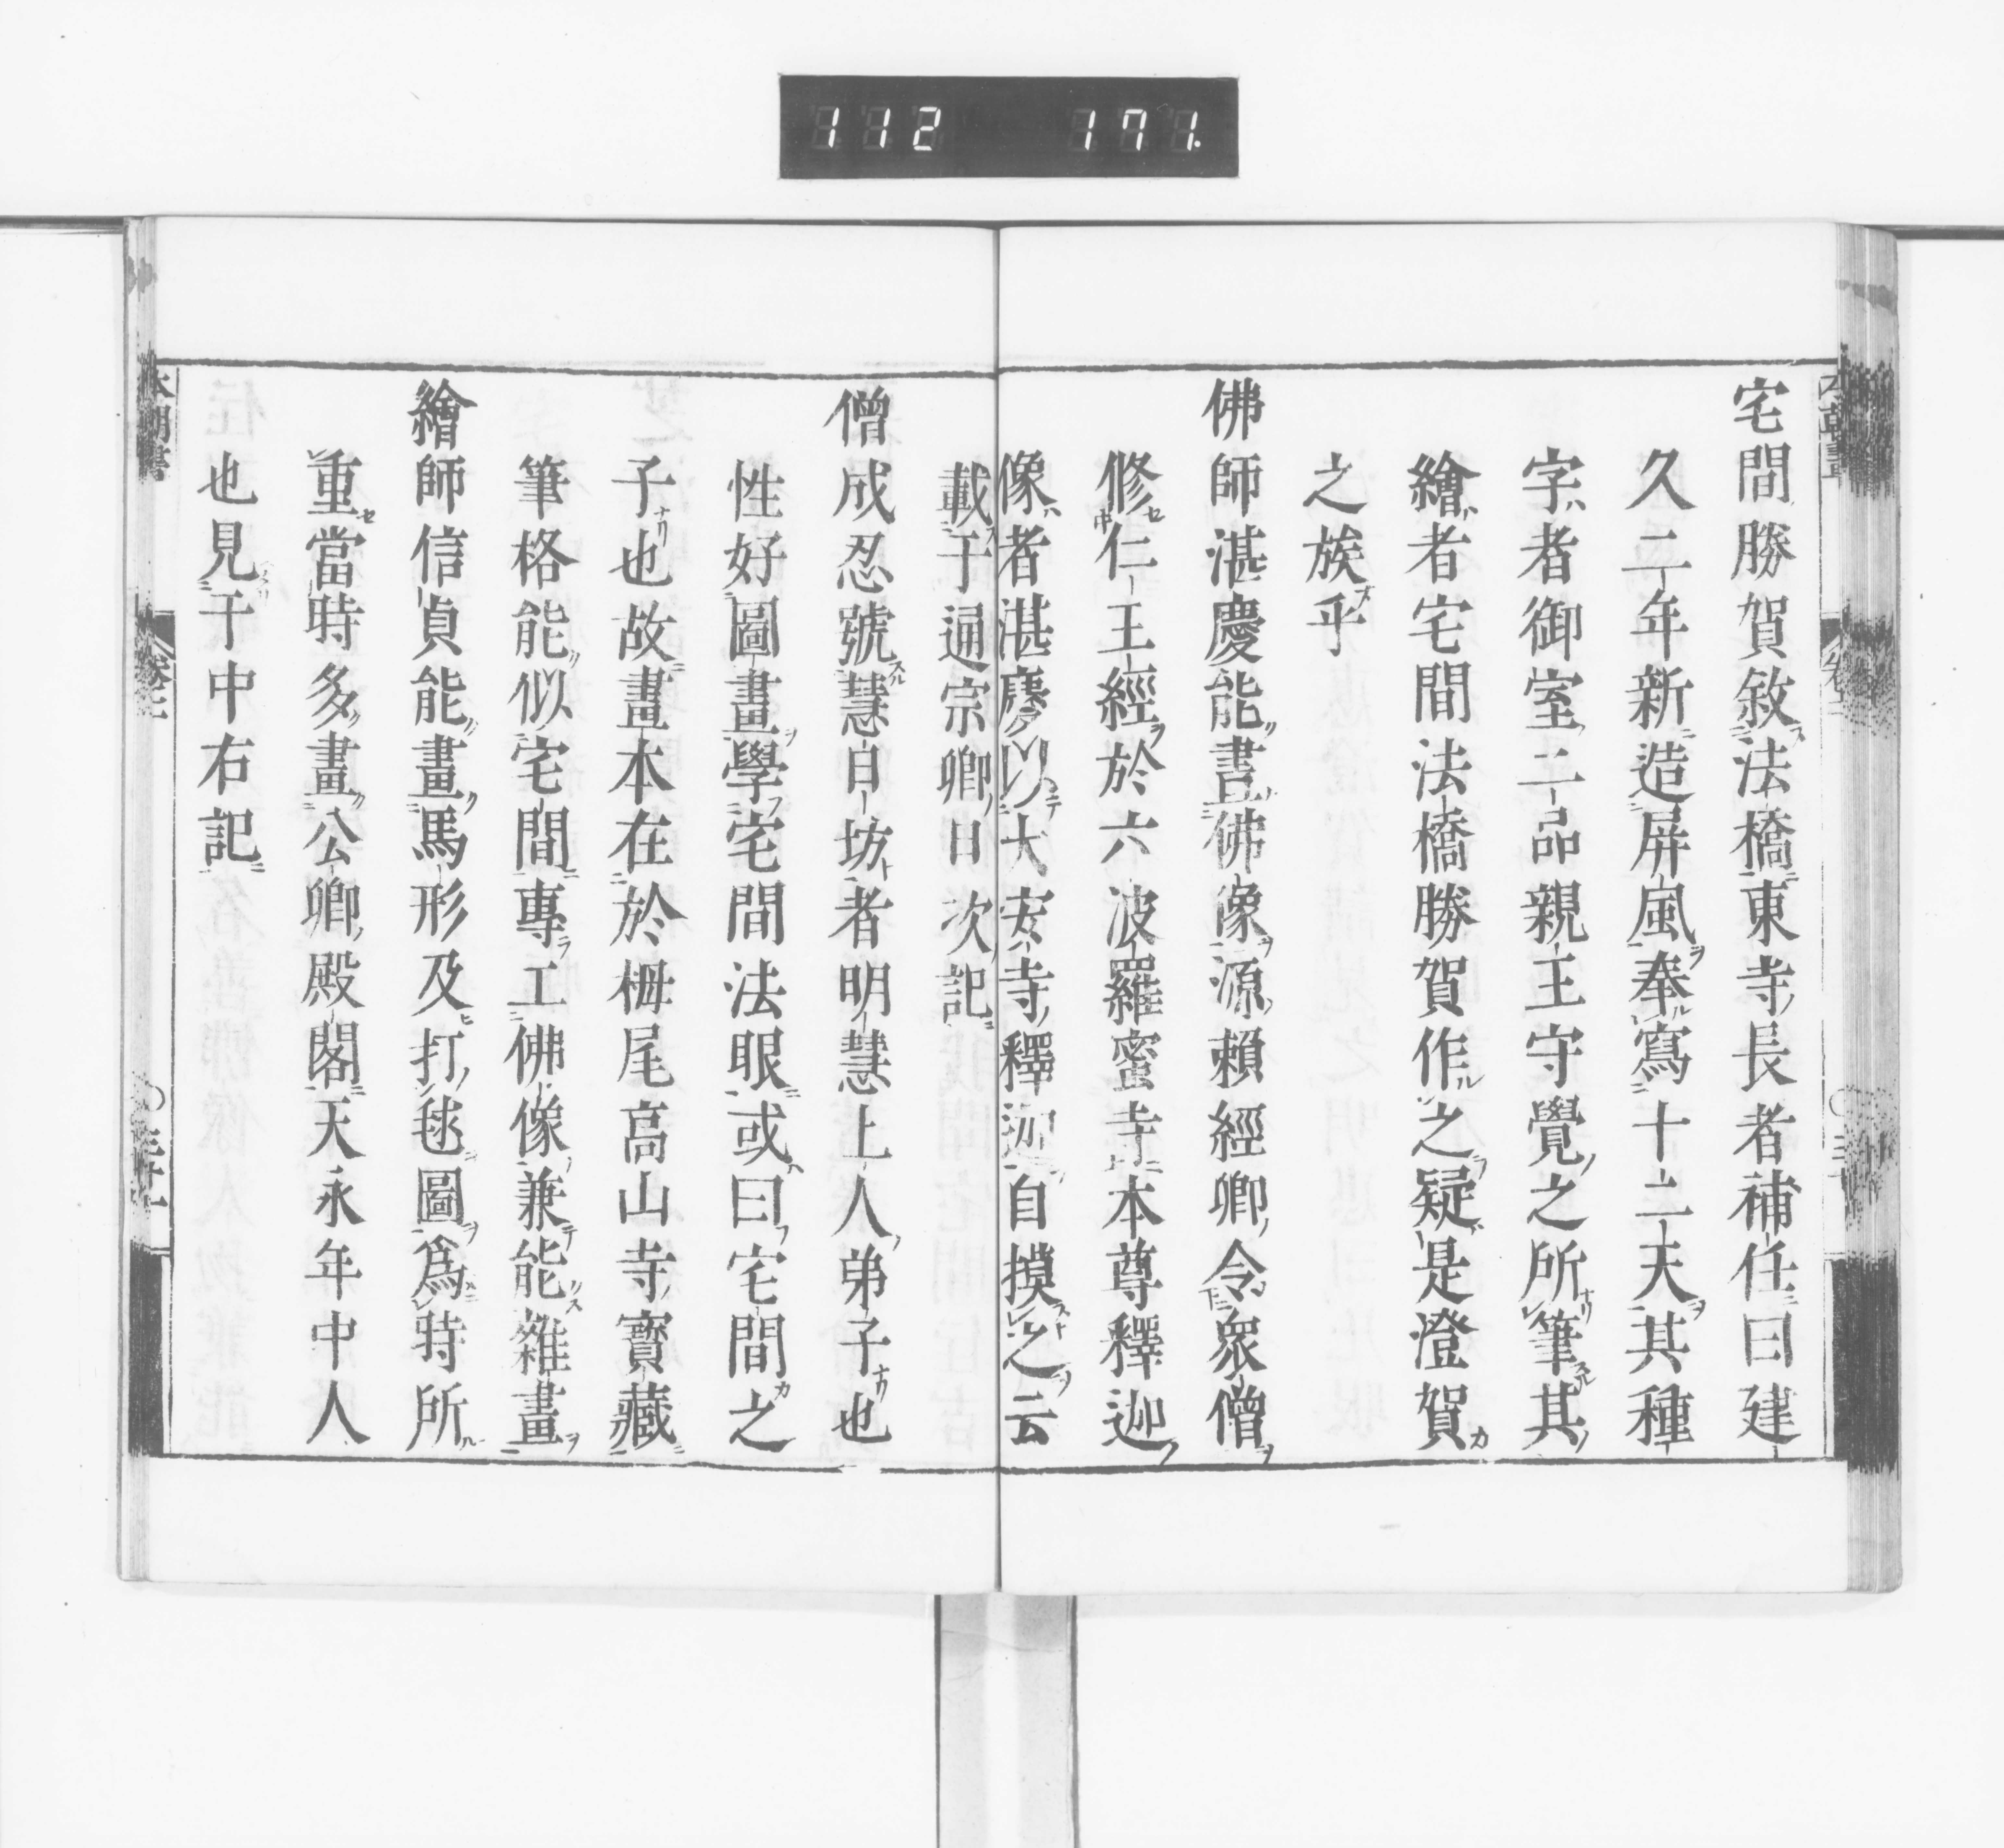 112 171.
宅間勝賀敘法橋東寺長者補任曰建
久二年新造屏風奉寫十二天其種
字者御室二品親王守覺之所筆其
繪者宅間法橋勝賀作之疑是澄賀
之族乎
佛師湛慶能畫佛像源賴經卿令衆僧
修仁王經於六波羅蜜寺本尊釋迦
像者湛慶以大安寺釋迦自摸之云
載于通宗卿日次記
僧成忍號慧日坊者明慧上人弟子也
性好圖畫學宅間法眼或曰宅間之
子也故畫本在於栂尾高山寺寶藏
筆格能似宅間專工佛像兼能雜畫
繪師信貞能畫馬形及打毬圖爲時所
重當時多畫公卿殿閣天永年中人
也見于中右記